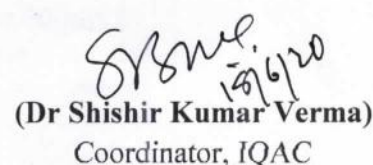 18/6/20
(Dr Shishir Kumar Verma)
Coordinator, IQAC